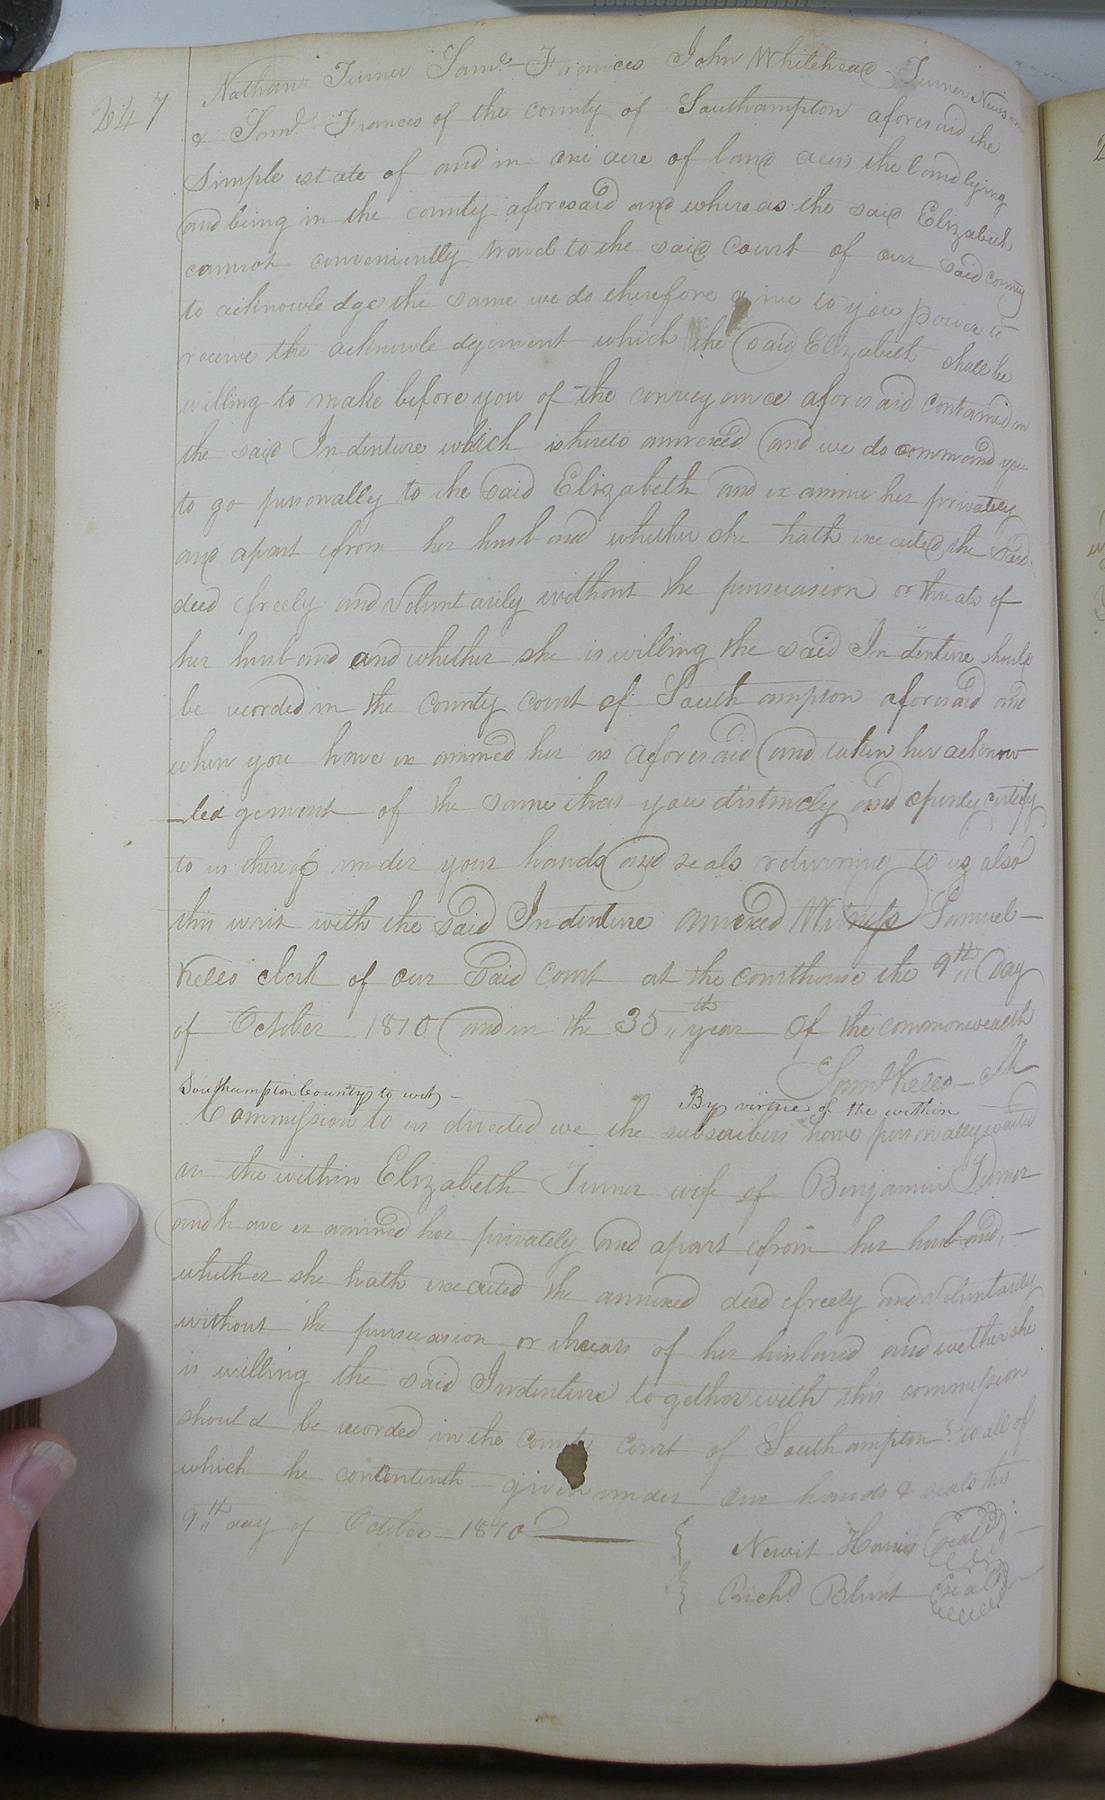 247
Nathan Turner Saml. Frances John Whitehead Turner Newsom
& Saml. Frances of the county of Southampton aforesaid the
Simple estate of and in one acre of land acers the land lying
and being in the county aforesaid and whereas the said Elizabeth
cannot conveniently travel to the said Court of our said county
to acknowledge the same we do therefore give to you power to
receive the acknowledgement which the said Elizabeth shall be
willing to make before you of the conveyance aforesaid contained in
the said Indenture which is hereto annexed and we do command you
to go personally to the said Elizabeth and examine her privately
and apart from her husband whether she hath executed the said
deed freely and voluntarily without the pursuasion or threats of
her husband and whether she is willing the said Indenture should
be recorded in the county court of Southampton aforesaid and
when you have examined her as aforesaid and taken her acknow
ledgement of the same that you distinctly and openly certify
to us thereof under your hands and seals returning to us also
this writ with the said Indenture annexed Witness Samuel
Kello clerk of our said court at the courthouse the 9th day
of October 1810 and in the 35th year of the commonwealth
Saml Kello
Southampton County to wit
By virtue of the within
Commission to us directed we the subscribers have personally waited
on the within Elizabeth Turner wife of Benjamin Turner
and have examined her privately and apart from her husband
whether she hath executed the annexed deed freely and voluntarily
without the pursuasion or threats of her husband and wether she
is willing the said Indenture together with this commission
should be recorded in the county court of Southampton to all of
which he contenteth given under our hands & seals this
9th day of October 1810
Newit Harris (Seal)
Richd. Blunt (Seal)